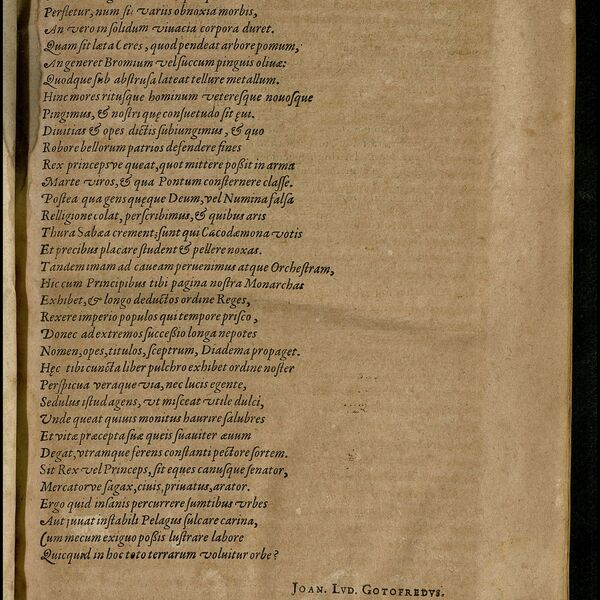 Perfletur, num ſi variis obnoxia morbis,
An vero in ſolidum viuacia corpora duret.
Quam ſit læta Ceres, quod pendeat arbore pomum,
An generet Bromium vel ſuccum pinguis oliuæ:
Quodque ſub abſtruſa lateat tellure metallum.
Hinc mores ritusque hominum vetereſque nouoſque
Pingimus, & noſtri quę conſuetudo ſit ęui.
Diuitias & opes dictis ſubiungimus, & quo
Robore bellorum patrios defendere fines
Rex princepsve queat, quot mittere poßit in arma
Marte viros, & qua Pontum conſternere claſſe.
Poſtea qua gens quęque Deum, vel Numina falſa
Relligione colat, perſcribimus, & quibus aris
Thura Sabæa crement; ſunt qui Cacodæmona votis
Et precibus placare ſtudent & pellere noxas.
Tandem imam ad caueam peruenimus atque Orcheſtram,
Hic cum Principibus tibi pagina noſtra Monarchas
Exhibet, & longo deductos ordine Reges,
Rexere imperio populos qui tempore priſco,
Donec ad extremos ſucceßio longa nepotes
Nomen, opes, titulos, ſceptrum, Diadema propaget.
Hęc tibi cuncta liber pulchro exhibet ordine noſter
Perſpicua veraque via, nec lucis egente,
Sedulus iſtud agens, vt miſceat vtile dulci,
Vnde queat quiuis monitus haurire ſalubres
Et vitæ præcepta ſuæ queis ſuauiter æuum
Degat, vtramque ferens conſtanti pectore ſortem.
Sit Rex vel Princeps, ſit eques canusque ſenator,
Mercatorve ſagax, ciuis, priuatus, arator.
Ergo quid inſanis percurrere ſumtibus vrbes
Aut juuat inſtabili Pelagus ſulcare carina,
Cum mecum exiguo poßis luſtrare labore
Quicquid in hoc toto terrarum voluitur orbe?
JOAN. LVD. GOTOFREDVS.